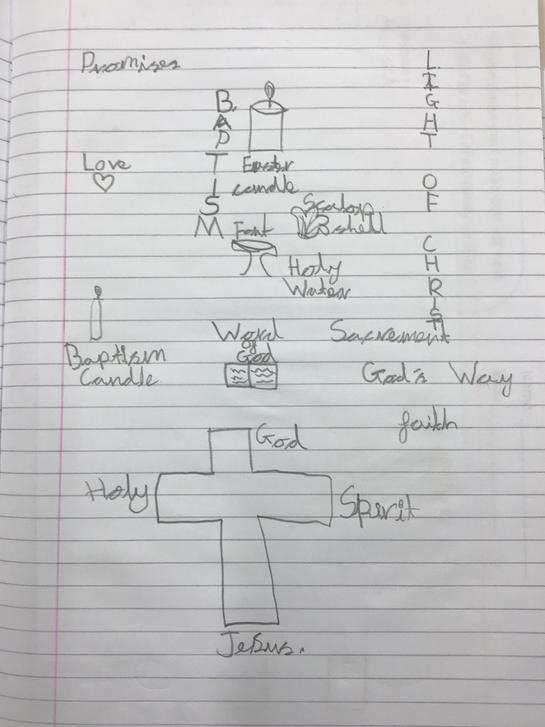 Promises
LIGHT OF CHRIST
B.APTISM
Easter
candle
Love
Scalop
Bshell
Font
Holy
Water
Baptism
Candle
Word
of
God
Sacrement
God's Way
faith
God
Holy
Spirit
Jesus.